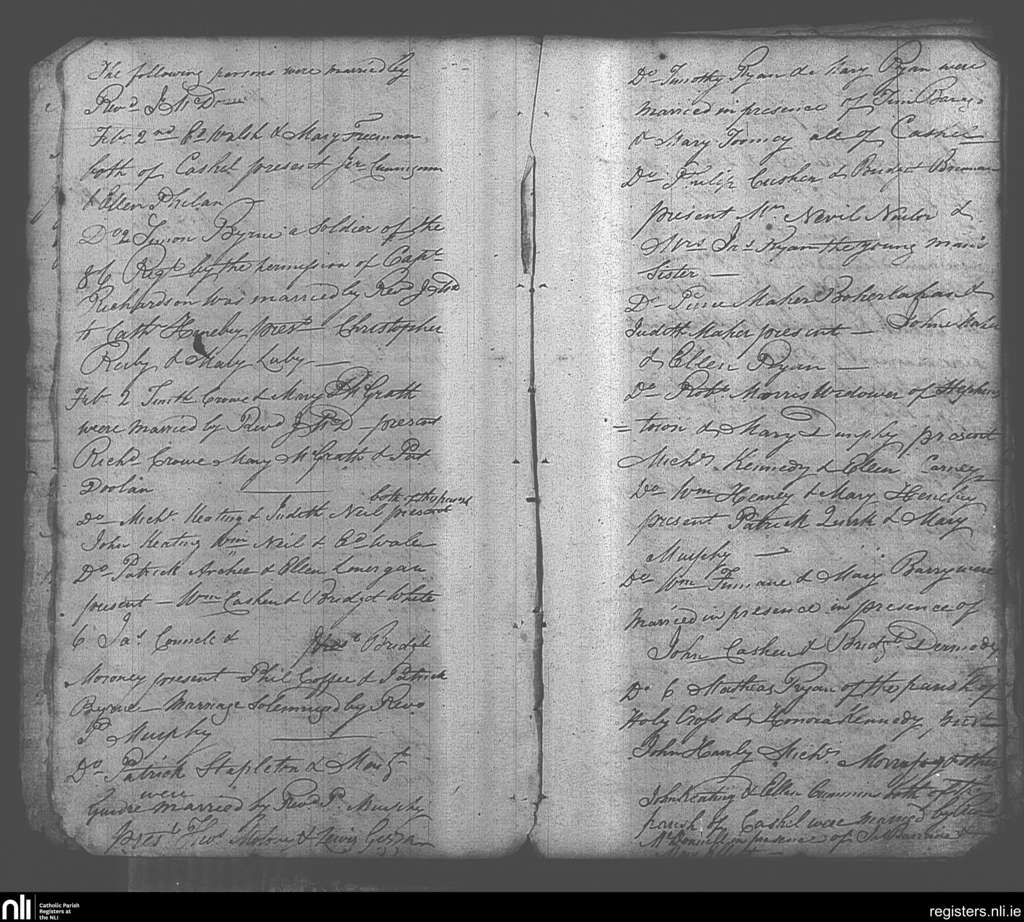 The following persons were married by
Revd J McDo
Feb. 2nd Ed Walsh & Mary Freeman
both of Cashel present
& Ellen Philan
Do 2 Byrne a Soldier of the
86 Regt by the permission of Capt
Richardson was married by Revd J
to Cath Heneby prest Christopher
Ruby & Mary Luby
Feb 2 Timth Crowe & Mary McGrath
were married by Revd J McD present
Richd Crowe Mary McGrath & Pat
Doolan
both of this parish
Do Michl Keating & Judith Neil present
John Keating Wm Neil & Ed Wale
Do Patrick Archer & Ellen Lonergan
present Wm Cashen & Bridgt White
6 Jas Connell & Bridgt
Moroney present Phil Coffee & Patrick
Byrne Marriage Solemnized by Revd
P Murphy
Do Patrick Stapleton & Margt
were
Guidre married by Revd P. Murphy
prest Thos & Lewis
Do Timothy Ryan & Mary Ryan were
married in presence of Tim Barry
& Mary Toomey all of Cashel
Do Philip Cushen & Bridget Brennan
present Mr Nevil Nailor &
Mrs Jas Ryan the young man's
Sister
Do Pierce Maher Boherlahan &
Judith Maher present John Maher
& Ellen Ryan
Do Robt Morris Widower of Stephens
= town & Mary Dunphy present
Michl Kennedy & Ellen Carney
Do Wm Heaney & Mary Henchy
present Patrick Quirk & Mary
Murphy
Do Wm Finnane & Mary Barry were
married in presence in presence of
John Cashen & Bridgt Dermody
Do 6 Mathias Ryan of the parish of
Holy Cross & Honora Kennedy, prest
John Hanly Michl
John Keating & Ellen Cummins both of the
parish of Cashel were married by Revd
in presence of
nli
Catholic Parish
Registers at
the NLI
registers.nli.ie